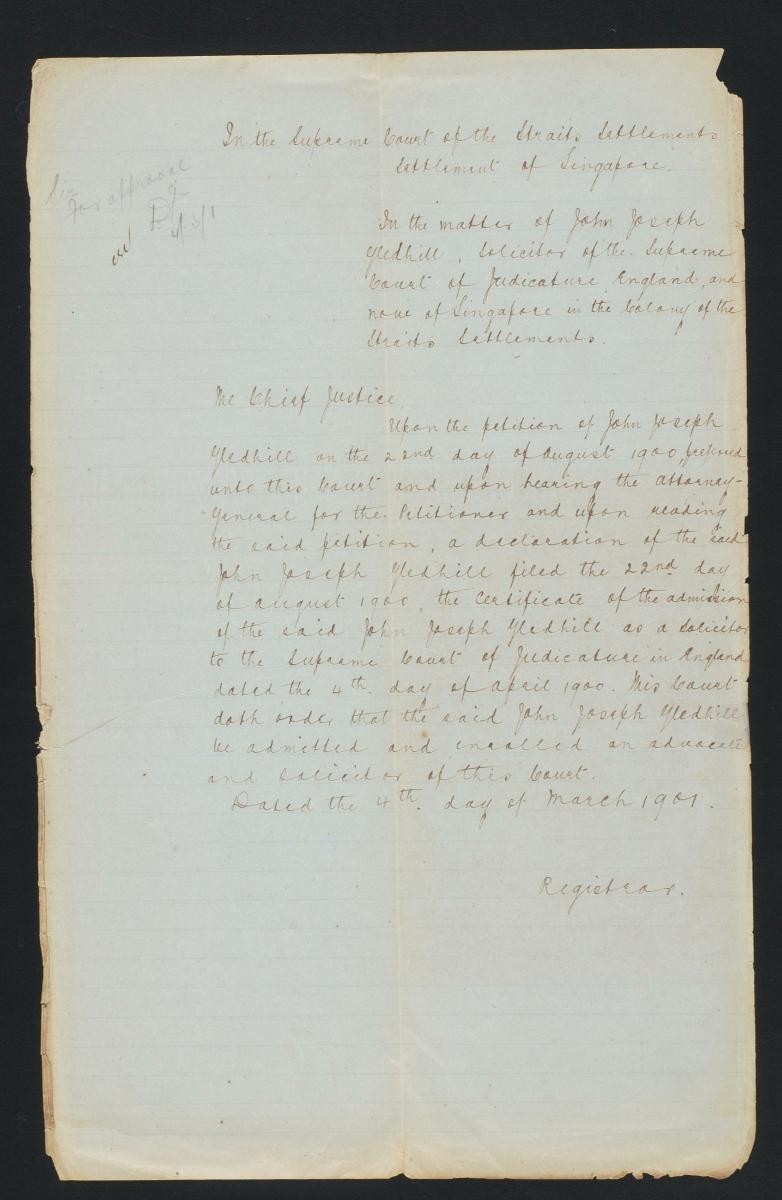 In the Supreme Court of the Straits Settlements
Settlement of Singapore.
Sir
For approval
4/3/1
In the matter of John Joseph
Gledhill, Solicitor of the Supreme
Court of Judicature England, and
now of Singapore in the Colony of the
Straits Settlements.
The Chief Justice
Upon the petition of John Joseph
Gledhill on the 22nd day of August 1900 preferred
unto this Court and upon hearing the Attorney-
General for the Petitioner and upon reading
the said petition, a declaration of the said
John Joseph Gledhill filed the 22nd day
of August 1900, the Certificate of the admission
of the said John Joseph Gledhill as a Solicitor
to the Supreme Court of Judicature in England
dated the 4th. day of April 1900. This Court
doth order that the said John Joseph Gledhill
be admitted and enrolled an advocate
and solicitor of this Court.
Dated the 4th. day of March 1901.
Registrar.